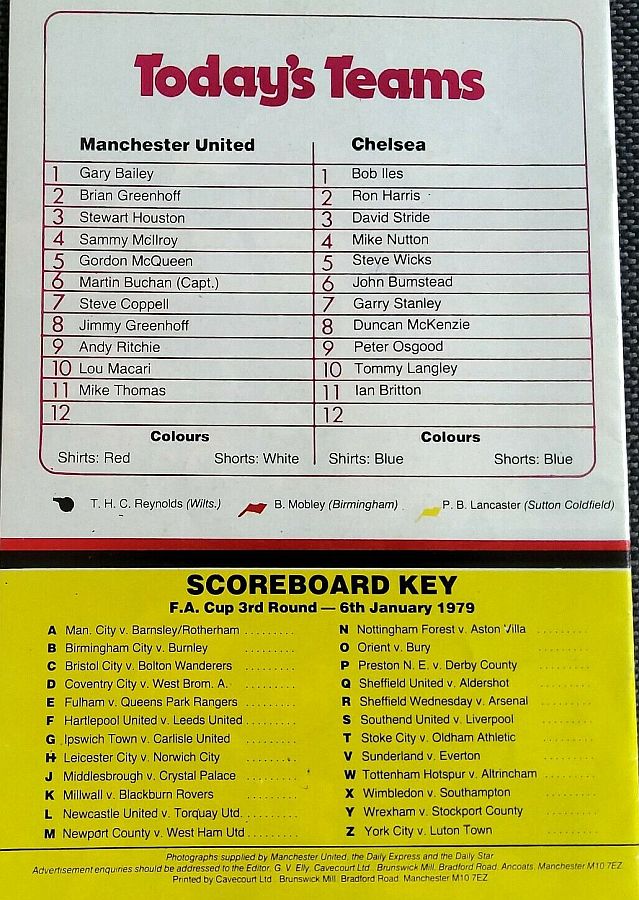 Today's Teams
Manchester United Chelsea
1 Gary Bailey 1 Bob Iles
2 Brian Greenhoff 2 Ron Harris
3 Stewart Houston 3 David Stride
4 Sammy McIlroy 4 Mike Nutton
5 Gordon McQueen 5 Steve Wicks
6 Martin Buchan (Capt.) 6 John Bumstead
7 Steve Coppell 7 Garry Stanley
8 Jimmy Greenhoff 8 Duncan McKenzie
9 Andy Ritchie 9 Peter Osgood
10 Lou Macari 10 Tommy Langley
11 Mike Thomas 11 Ian Britton
12 12
Colours Colours
Shirts: Red Shorts: White Shirts: Blue Shorts: Blue
T. H. C. Reynolds (Wilts.) B. Mobley (Birmingham) P. B. Lancaster (Sutton Coldfield)
SCOREBOARD KEY
F.A. Cup 3rd Round — 6th January 1979
A Man. City v. Barnsley/Rotherham ......... N Nottingham Forest v. Aston Villa .........
B Birmingham City v. Burnley ......... O Orient v. Bury .........
C Bristol City v. Bolton Wanderers ......... P Preston N. E. v. Derby County .........
D Coventry City v. West Brom. A. ......... Q Sheffield United v. Aldershot .........
E Fulham v. Queens Park Rangers ......... R Sheffield Wednesday v. Arsenal .........
F Hartlepool United v. Leeds United ......... S Southend United v. Liverpool .........
G Ipswich Town v. Carlisle United ......... T Stoke City v. Oldham Athletic .........
H Leicester City v. Norwich City ......... V Sunderland v. Everton .........
J Middlesbrough v. Crystal Palace ......... W Tottenham Hotspur v. Altrincham .........
K Millwall v. Blackburn Rovers ......... X Wimbledon v. Southampton .........
L Newcastle United v. Torquay Utd. ......... Y Wrexham v. Stockport County .........
M Newport County v. West Ham Utd ......... Z York City v. Luton Town .........
Photographs supplied by Manchester United, the Daily Express and the Daily Star
Advertisement enquiries should be addressed to the Editor, G. V. Elly, Cavecourt Ltd., Brunswick Mill, Bradford Road, Ancoats, Manchester M10 7EZ
Printed by Cavecourt Ltd., Brunswick Mill, Bradford Road, Manchester M10 7EZ